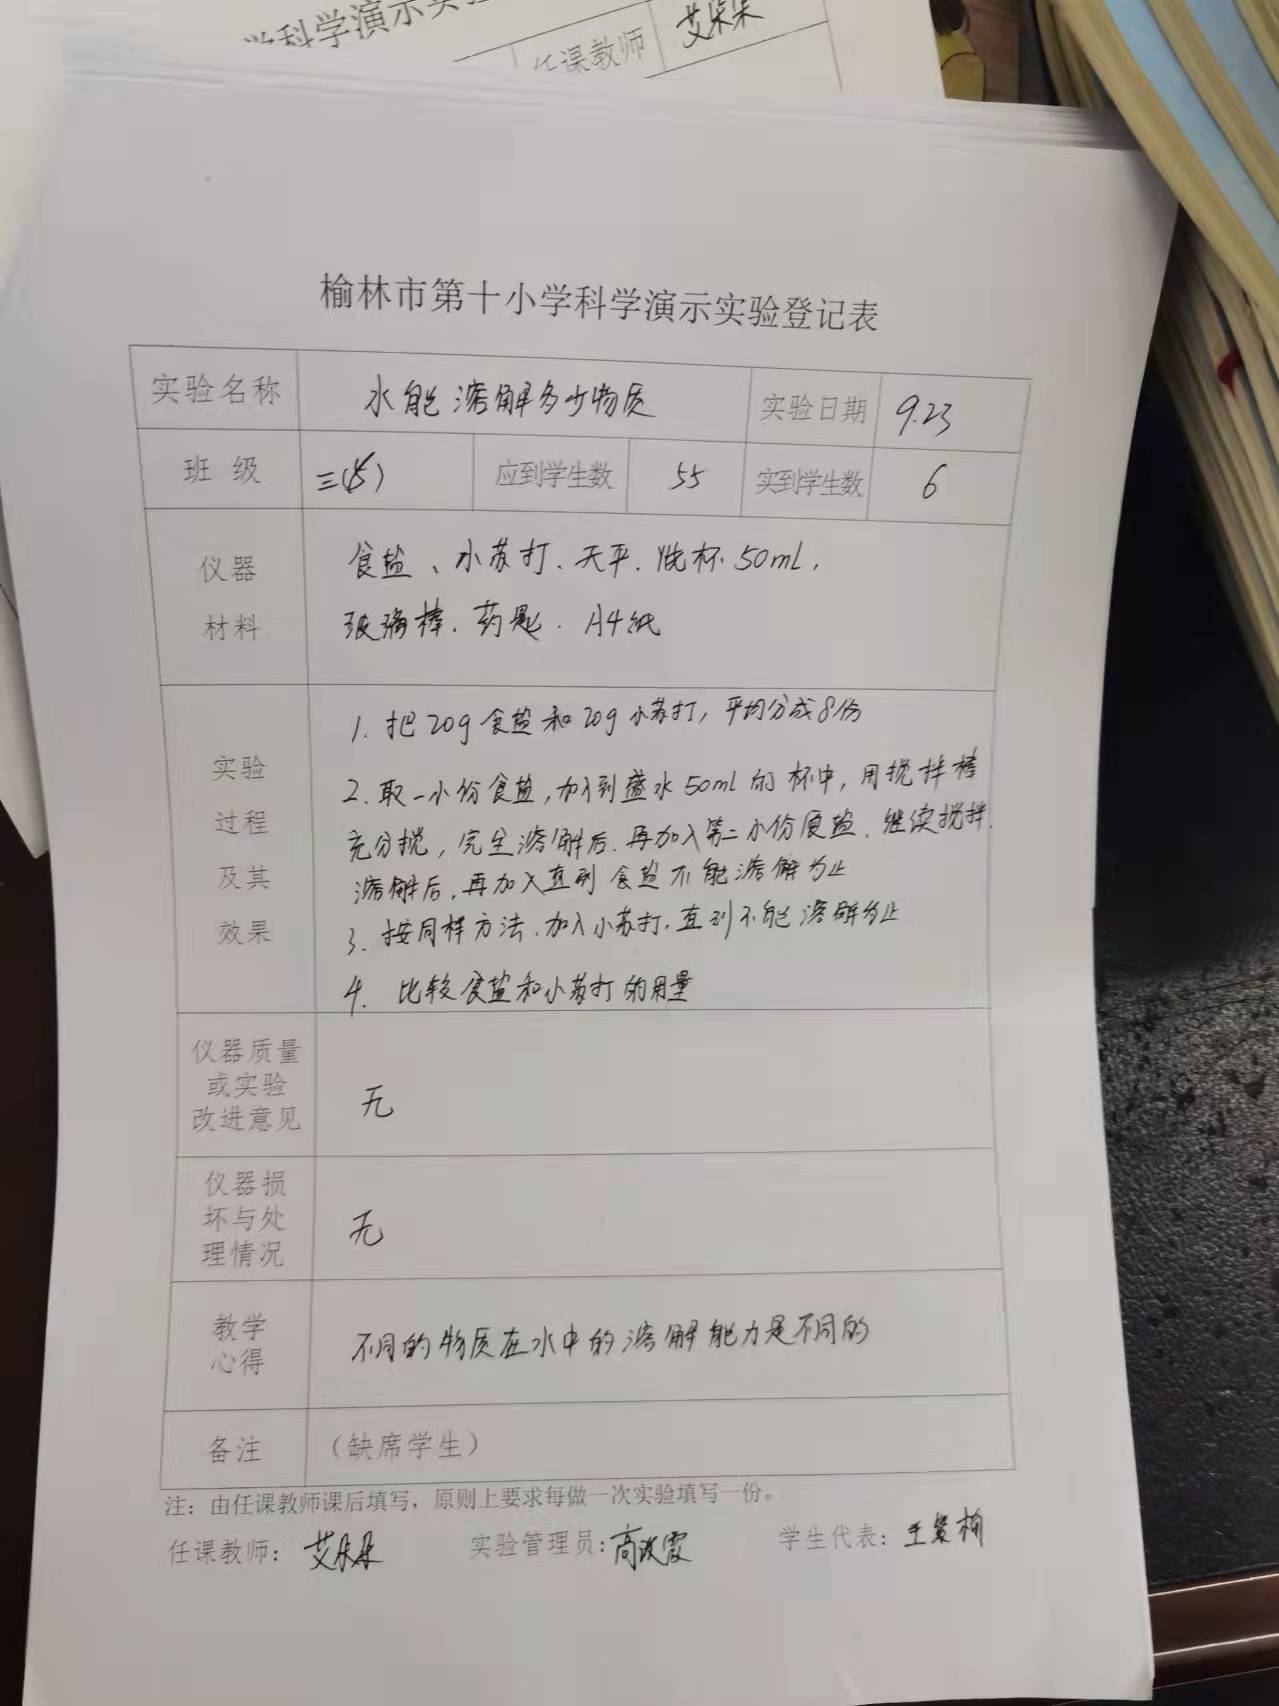 科学演示实
任课教师
榆林市第十小学科学演示实验登记表
实验名称 水能溶解多少物质 实验日期 9.23
班 级 三( ) 应到学生数 55 实到学生数 6
仪器 食盐、水苏打、天平、烧杯 50ml,
材料 玻璃棒、药匙、A4纸
1. 把20g食盐和20g小苏打,平均分成8份
实验
2. 取一小份食盐,加入到盛水50ml的杯中,用搅拌棒
过程
充分搅,完全溶解后.再加入第二小份食盐.继续搅拌.
及其
溶解后,再加入直到食盐不能溶解为止
效果
3. 按同样方法.加入小苏打.直到不能溶解为止
4. 比较食盐和小苏打的用量
仪器质量
或实验
改进意见
无
仪器损
坏与处
理情况
无
教学
心得
不同的物质在水中的溶解能力是不同的
备注 (缺席学生)
注:由任课教师课后填写,原则上要求每做一次实验填写一份。
任课教师: 艾朵朵 实验管理员: 高 霞 学生代表: 王 榆